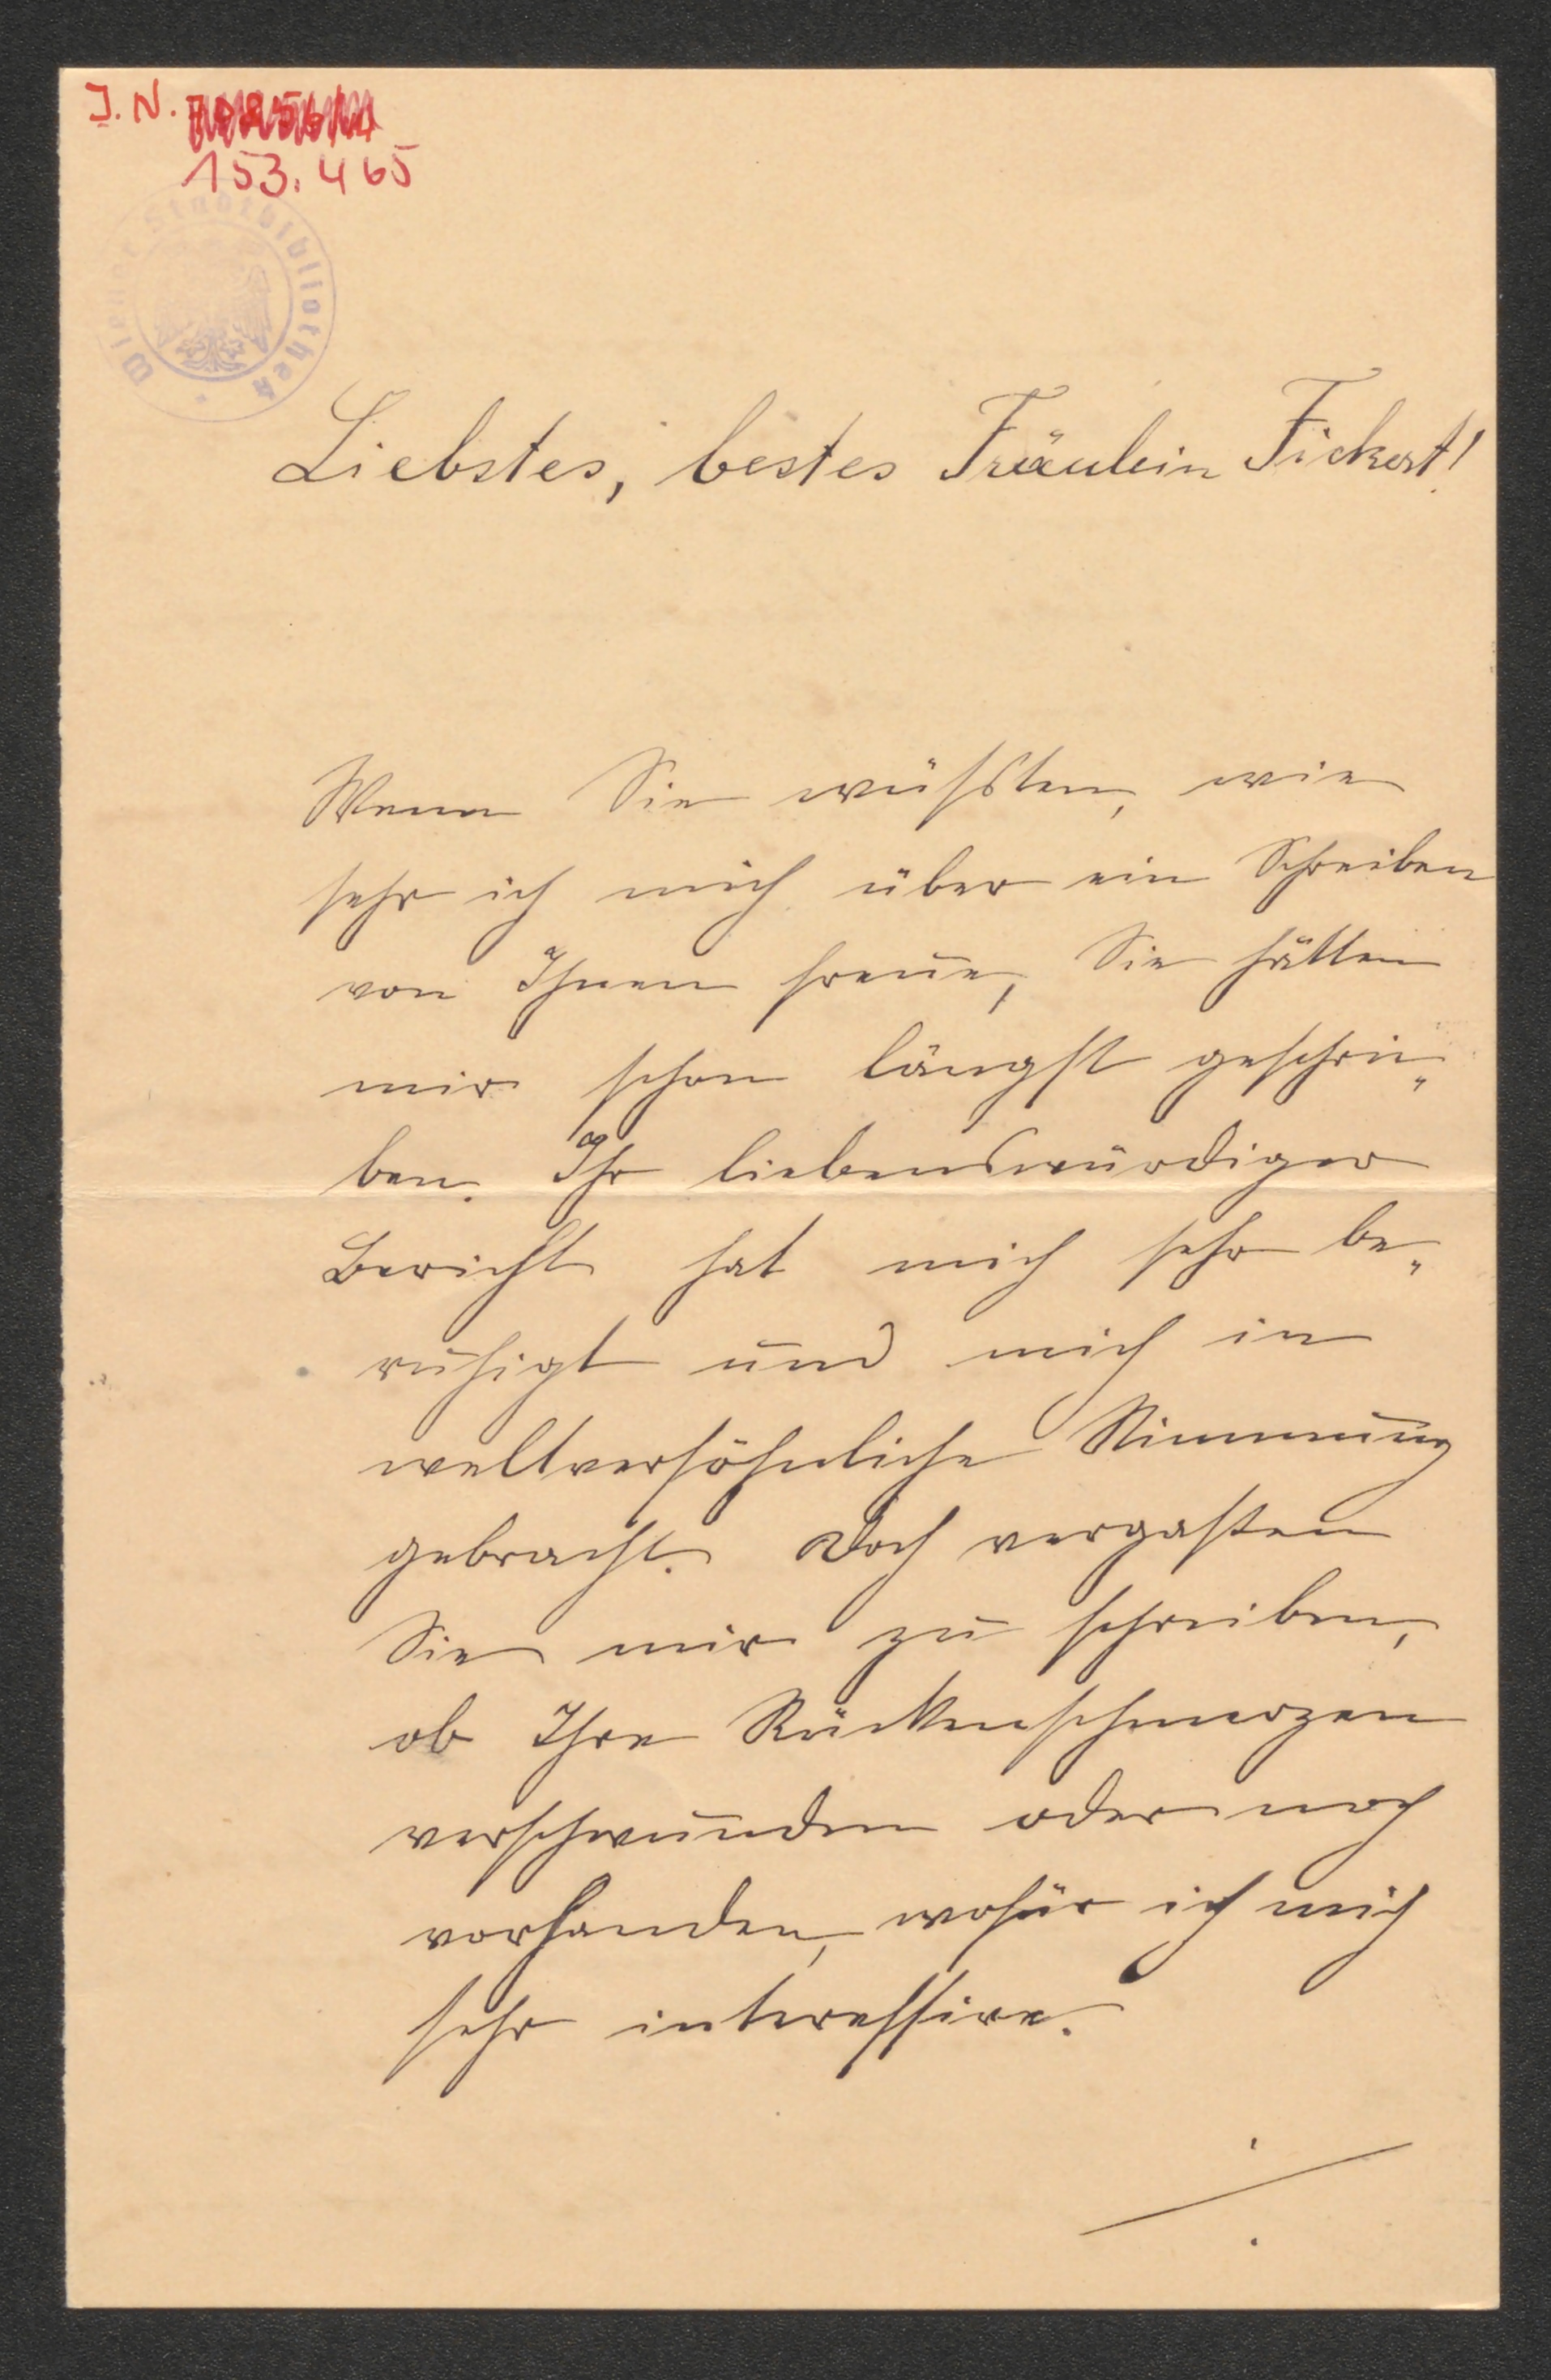 J. N.
153.465
Wiener Stadtbibliothek
Liebstes, bestes Fräulein Fickert!
Wenn Sie wüßten, wie
sehr ich mich über ein Schreiben
von Ihnen freue, Sie hätten
mir schon längst geschrie„
ben. Ihr liebenswürdiger
Bericht hat mich sehr be„
ruhigt und mich in
weltversöhnliche Stimmung
gebracht. Doch vergaßen
Sie mir zu schreiben,
ob Ihre Rückenschmerzen
verschwunden oder noch
vorhanden, wofür ich mich
sehr interessire.
./.